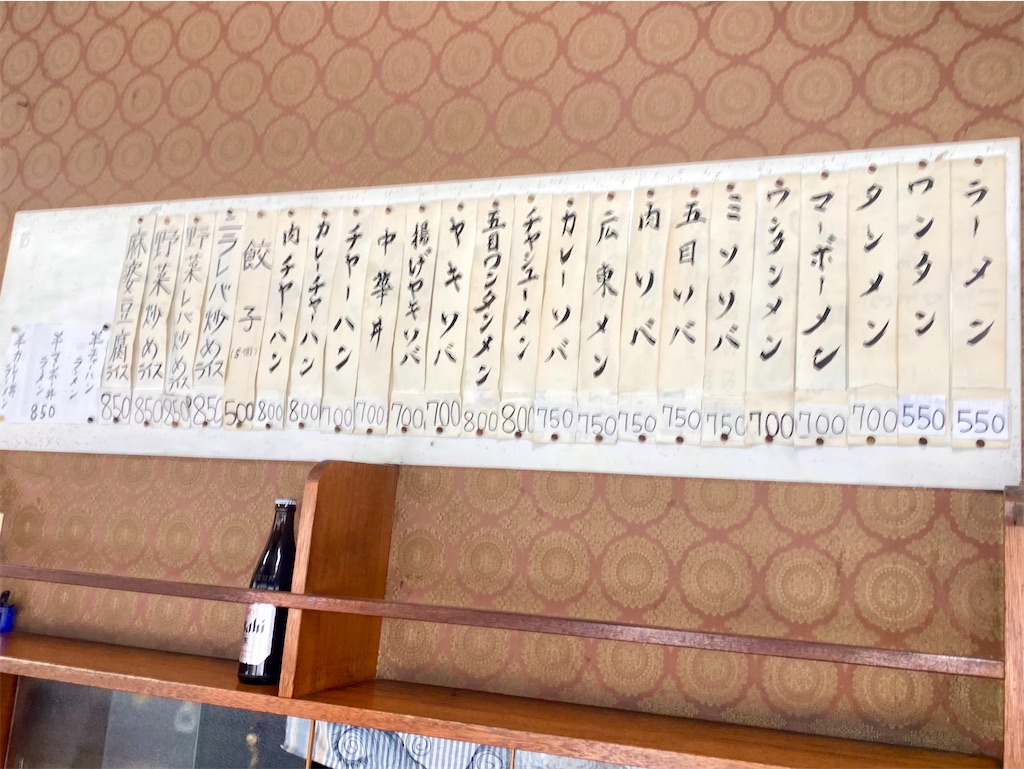 ラーメン
550
ワンタン
550
タンメン
700
マーボーメン
700
ワンタンメン
700
ミソソバ
750
五目ソバ
750
肉ソバ
750
広東メン
750
カレーソバ
750
チャシューメン
800
五目ワンタンメン
800
ヤキソバ
700
揚げヤキソバ
700
中華丼
700
チャーハン
700
カレーチャーハン
800
肉チャーハン
800
餃子
(5個)
500
ニラレバ炒め
ライス
850
野菜レバ炒め
ライス
850
野菜炒め
ライス
850
麻婆豆腐
ライス
850
半チャーハン
ラーメン
半マーボー丼
ラーメン
850
半カレー丼
ラーメン
Asahi